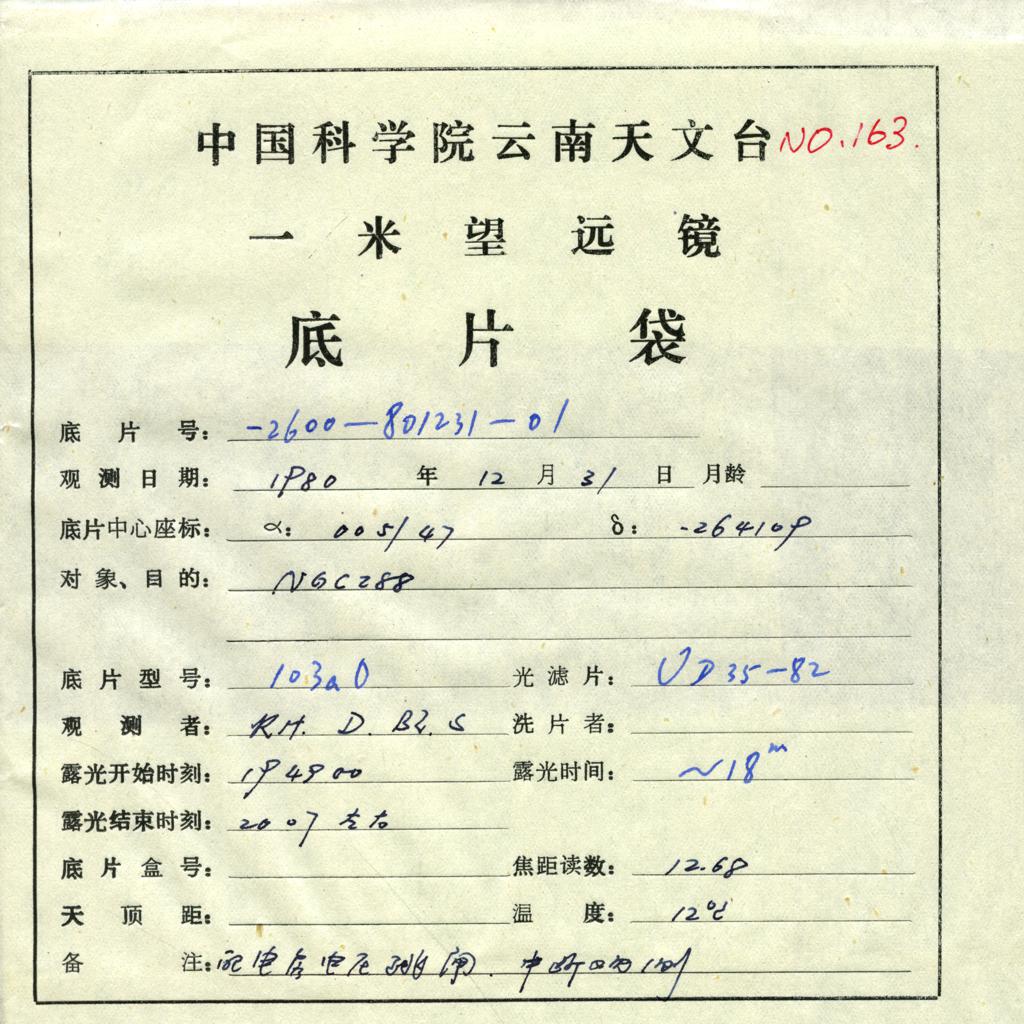 中国科学院云南天文台 NO.163.
一米望远镜
底片袋
底片号： -2600-801231-01
观测日期： 1980 年 12 月 31 日 月龄
底片中心座标： α： 005147 δ： -264109
对象、目的： NGC288
底片型号： 103aO 光滤片： UD35-82
观测者： RH. D. B2. S 洗片者：
露光开始时刻： 194900 露光时间： ~18m
露光结束时刻： 2007 左右
底片盒号： 焦距读数： 12.68
天顶距： 温度： 12℃
备注： 配电室电压跳闸. 中断